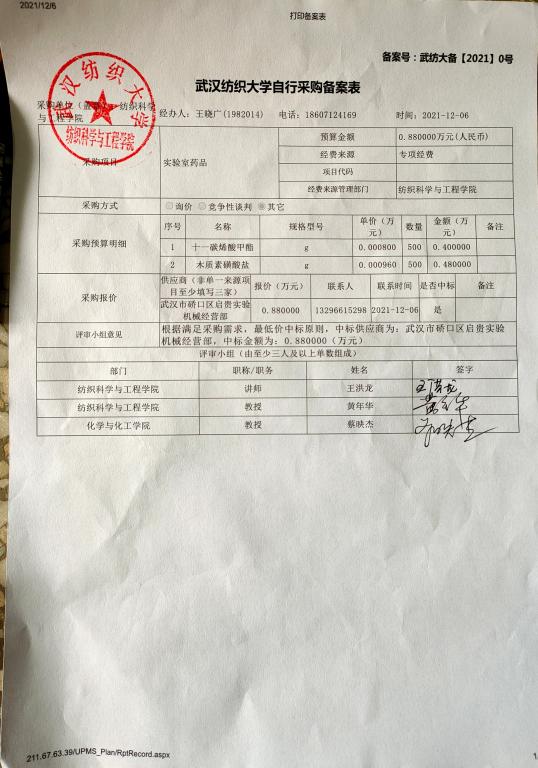 2021/12/6
打印备案表
备案号：武纺大备【2021】0号
武汉纺织大学自行采购备案表
武汉纺织大学
纺织科学与工程学院
采购单位（盖章）：纺织科学与工程学院 经办人：王晓广(1982014) 电话：18607124169 时间：2021-12-06
采购项目 实验室药品 预算金额 0.880000万元(人民币)
经费来源 专项经费
项目代码
经费来源管理部门 纺织科学与工程学院
采购方式 询价 竞争性谈判 其它
采购预算明细 序号 名称 规格型号 单价（万元） 数量 金额（万元） 备注
1 十一碳烯酸甲酯 g 0.000800 500 0.400000
2 木质素磺酸盐 g 0.000960 500 0.480000
采购报价 供应商（非单一来源项目至少填写三家） 报价（万元） 联系人 联系时间 是否中标 备注
武汉市硚口区启贵实验机械经营部 0.880000 13296615298 2021-12-06 是
评审小组意见 根据满足采购需求，最低价中标原则，中标供应商为：武汉市硚口区启贵实验
机械经营部，中标金额为：0.880000（万元）
评审小组（由至少三人及以上单数组成）
部门 职称/职务 姓名 签字
纺织科学与工程学院 讲师 王洪龙 王洪龙
纺织科学与工程学院 教授 黄年华 黄年华
化学与化工学院 教授 蔡映杰
211.67.63.39/UPMS_Plan/RptRecord.aspx